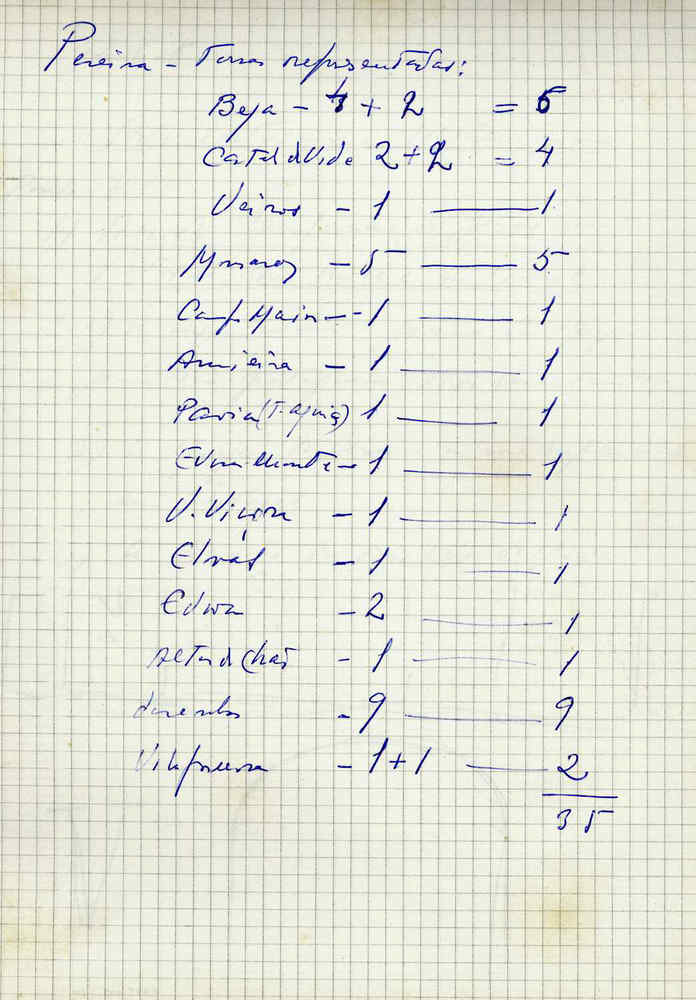 Pereira – Terras representadas:
Beja – 4 + 2 = 6
Castel d Vide 2 + 2 = 4
Veiros – 1 — 1
Monsaraz – 5 — 5
Camp. Maior – 1 — 1
Amieira – 1 — 1
Pavia (T. Aguiq) 1 — 1
Evora Monte – 1 — 1
V. Viçosa – 1 — 1
Elvas – 1 — 1
Evora – 2 — 1
Alter d Chão – 1 — 1
– 9 — 9
– 1 + 1 — 2
35